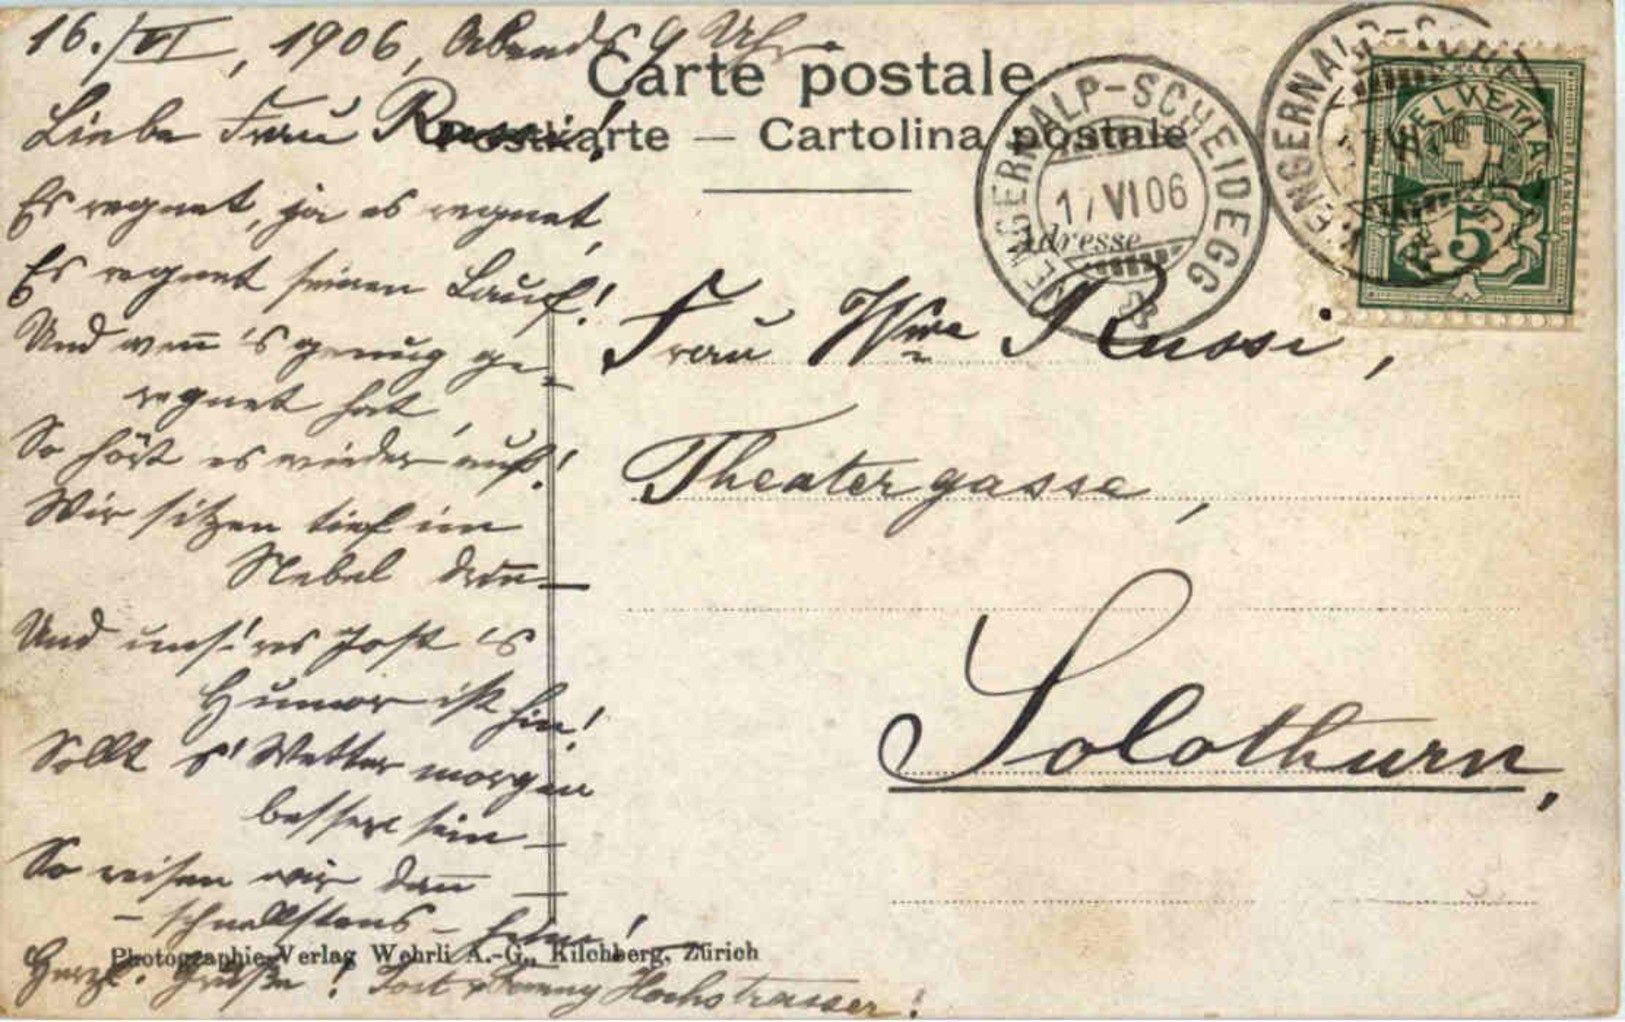 16./VI, 1906, Abends 9 Uhr.
Carte postale
Liebe Frau Russi!
Postkarte — Cartolina postale
Es regnet, ja es regnet,
Es regnet seinen Lauf!
Und wen̅ 's genug ge-
regnet hat,
So hört es wieder auf!
Wir sitzen tief im
Nebel
Und uns'res Jost 's
Humor ist hin!
Sollt s' Wetter morgen
besser sein —
So reisen wir dan̅ —
– schnellstens –
Photographie-Verlag Wehrli A.-G., Kilchberg, Zürich
Herzl. Grüße! Jost & Fanny Hochstrasser!
WENGERNALP-SCHEIDEGG
17 VI 06
Adresse
WENGERNALP-SCHEIDEGG
HELVETIA
5
Frau Wwe Russi,
Theatergasse,
Solothurn,